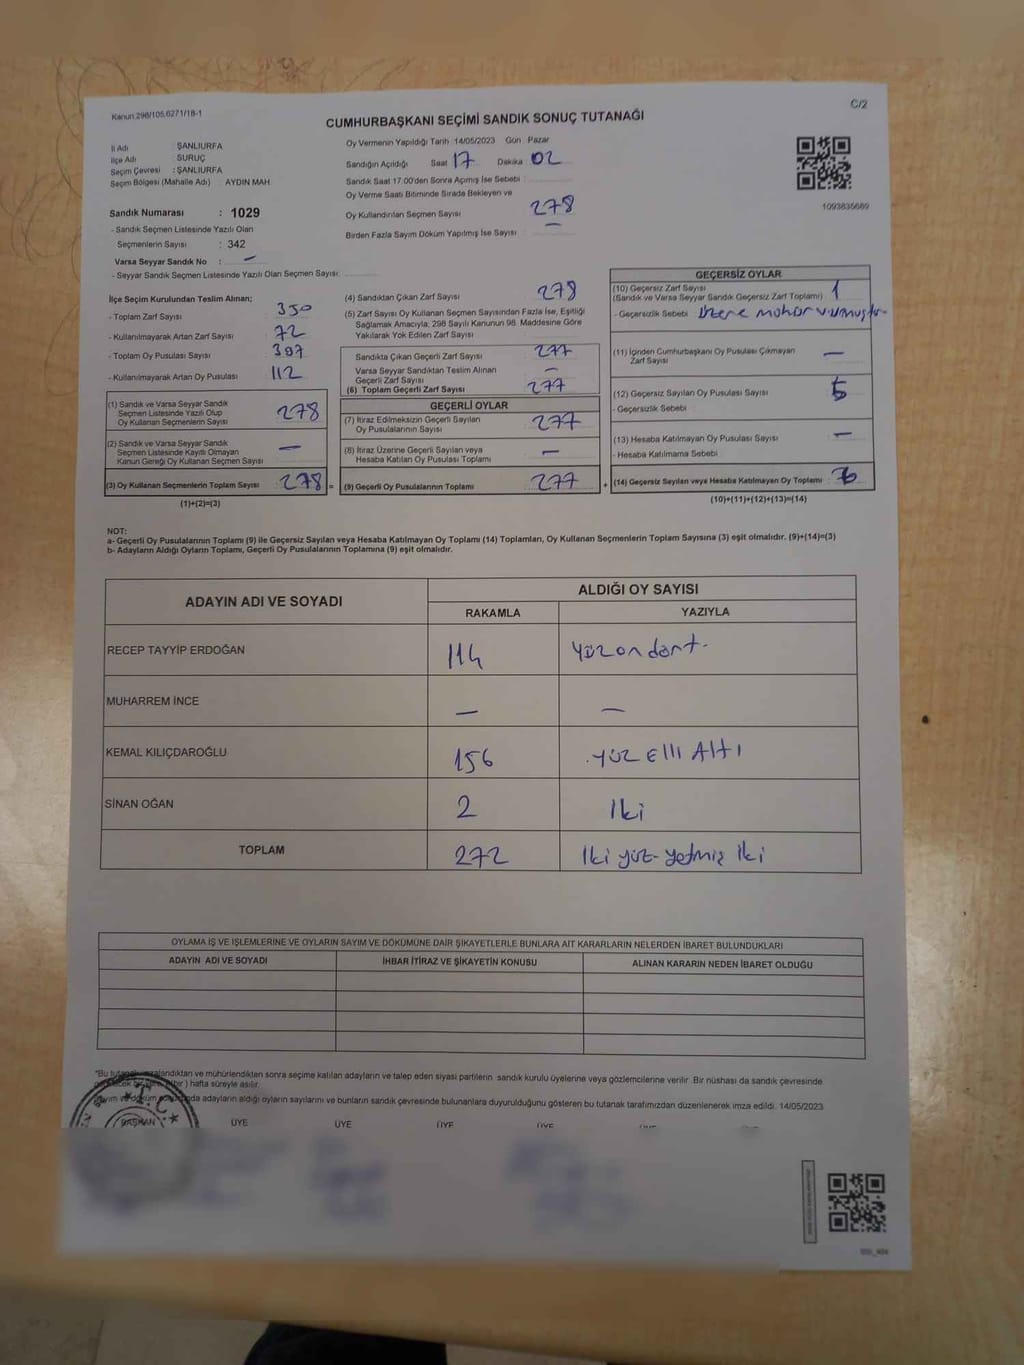 Kanun 298/105,6271/18-1
C/2
CUMHURBAŞKANI SEÇİMİ SANDIK SONUÇ TUTANAĞI
İl Adı : ŞANLIURFA
İlçe Adı : SURUÇ
Seçim Çevresi : ŞANLIURFA
Seçim Bölgesi (Mahalle Adı) : AYDIN MAH
Sandık Numarası : 1029
- Sandık Seçmen Listesinde Yazılı Olan
Seçmenlerin Sayısı : 342
Varsa Seyyar Sandık No : —
- Seyyar Sandık Seçmen Listesinde Yazılı Olan Seçmen Sayısı:
Oy Vermenin Yapıldığı Tarih 14/05/2023 Gün Pazar
Sandığın Açıldığı Saat 17 Dakika 02
Sandık Saat 17:00'den Sonra Açımış İse Sebebi :
Oy Verme Saati Bitiminde Sırada Bekleyen ve
Oy Kullandırılan Seçmen Sayısı 278
Birden Fazla Sayım Döküm Yapılmış İse Sayısı : —
1093835689
İlçe Seçim Kurulundan Teslim Alınan;
- Toplam Zarf Sayısı : 350
- Kullanılmayarak Artan Zarf Sayısı : 72
- Toplam Oy Pusulası Sayısı : 397
- Kullanılmayarak Artan Oy Pusulası : 112
(1) Sandık ve Varsa Seyyar Sandık
Seçmen Listesinde Yazılı Olup
Oy Kullanan Seçmenlerin Sayısı : 278
(2) Sandık ve Varsa Seyyar Sandık
Seçmen Listesinde Kayıtlı Olmayan
Kanun Gereği Oy Kullanan Seçmen Sayısı : —
(3) Oy Kullanan Seçmenlerin Toplam Sayısı : 278 =
(1)+(2)=(3)
(4) Sandıktan Çıkan Zarf Sayısı : 278
(5) Zarf Sayısı Oy Kullanan Seçmen Sayısından Fazla İse, Eşitliği
Sağlamak Amacıyla, 298 Sayılı Kanunun 98. Maddesine Göre
Yakılarak Yok Edilen Zarf Sayısı
Sandıkta Çıkan Geçerli Zarf Sayısı : 277
Varsa Seyyar Sandıktan Teslim Alınan
Geçerli Zarf Sayısı : —
(6) Toplam Geçerli Zarf Sayısı : 277
GEÇERLİ OYLAR
(7) İtiraz Edilmeksizin Geçerli Sayılan
Oy Pusulalarının Sayısı : 277
(8) İtiraz Üzerine Geçerli Sayılan veya
Hesaba Katılan Oy Pusulası Toplamı : —
(9) Geçerli Oy Pusulalarının Toplamı : 277 +
GEÇERSİZ OYLAR
(10) Geçersiz Zarf Sayısı
(Sandık ve Varsa Seyyar Sandık Geçersiz Zarf Toplamı) : 1
- Geçersizlik Sebebi : üzere mühür vurmuştur
(11) İçinden Cumhurbaşkanı Oy Pusulası Çıkmayan
Zarf Sayısı : —
(12) Geçersiz Sayılan Oy Pusulası Sayısı : 5
- Geçersizlik Sebebi :
(13) Hesaba Katılmayan Oy Pusulası Sayısı : —
- Hesaba Katılmama Sebebi
(14) Geçersiz Sayılan veya Hesaba Katılmayan Oy Toplamı : 6
(10)+(11)+(12)+(13)=(14)
NOT:
a- Geçerli Oy Pusulalarının Toplamı (9) ile Geçersiz Sayılan veya Hesaba Katılmayan Oy Toplamı (14) Toplamları, Oy Kullanan Seçmenlerin Toplam Sayısına (3) eşit olmalıdır. (9)+(14)=(3)
b- Adayların Aldığı Oyların Toplamı, Geçerli Oy Pusulalarının Toplamına (9) eşit olmalıdır.
ADAYIN ADI VE SOYADI
ALDIĞI OY SAYISI
RAKAMLA YAZIYLA
RECEP TAYYİP ERDOĞAN 114 Yüz on dört-
MUHARREM İNCE — —
KEMAL KILIÇDAROĞLU 156 YÜZ Elli Altı
SİNAN OĞAN 2 İki
TOPLAM 272 İki yüz-yetmiş iki
OYLAMA İŞ VE İŞLEMLERİNE VE OYLARIN SAYIM VE DÖKÜMÜNE DAİR ŞİKAYETLERLE BUNLARA AİT KARARLARIN NELERDEN İBARET BULUNDUKLARI
ADAYIN ADI VE SOYADI İHBAR İTİRAZ VE ŞİKAYETİN KONUSU ALINAN KARARIN NEDEN İBARET OLDUĞU
"Bu tutanak imzalandıktan ve mühürlendikten sonra seçime katılan adayların ve talep eden siyasi partilerin sandık kurulu üyelerine veya gözlemcilerine verilir. Bir nüshası da sandık çevresinde
(bir) hafta süreyle asılır.
Sayım ve döküm sonucunda adayların aldığı oyların sayılarını ve bunların sandık çevresinde bulunanlara duyurulduğunu gösteren bu tutanak tarafımızdan düzenlenerek imza edildi. 14/05/2023
T.C.
BAŞKAN ÜYE ÜYE ÜYE ÜYE